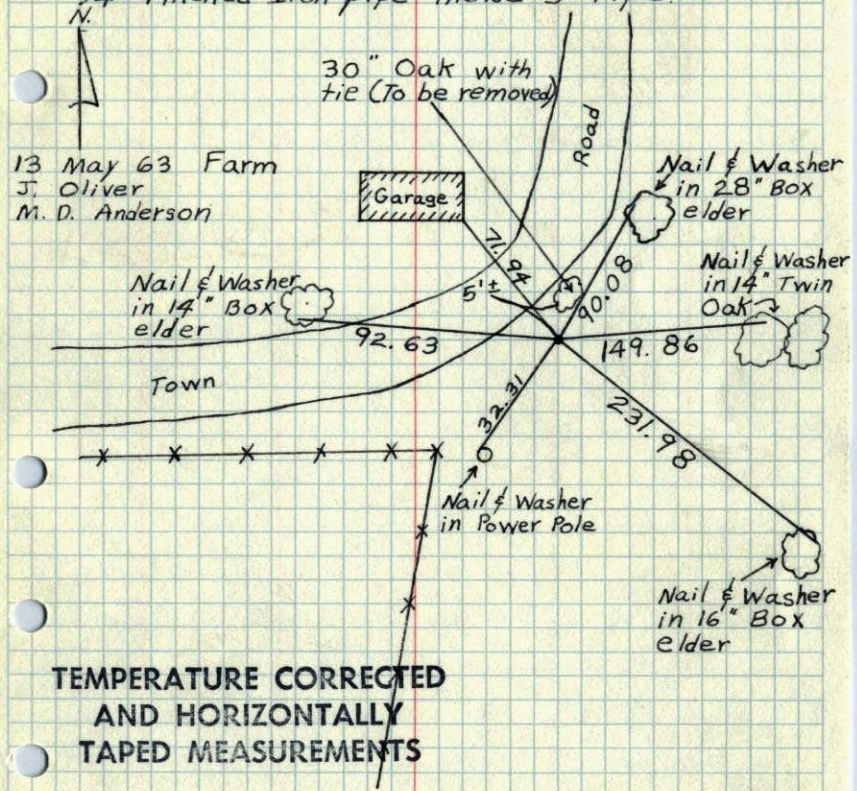 N.
30" Oak with
tie (To be removed)
Road
13 May 63 Farm
J. Oliver
M. D. Anderson
Garage
Nail & Washer
in 28" Box
elder
71.94
Nail & Washer
in 14" Twin
Oak
Nail & Washer
in 14" Box
elder
5'±
90.08
92.63
149.86
Town
32.31
231.98
Nail & Washer
in Power Pole
Nail & Washer
in 16" Box
elder
TEMPERATURE CORRECTED
AND HORIZONTALLY
TAPED MEASUREMENTS